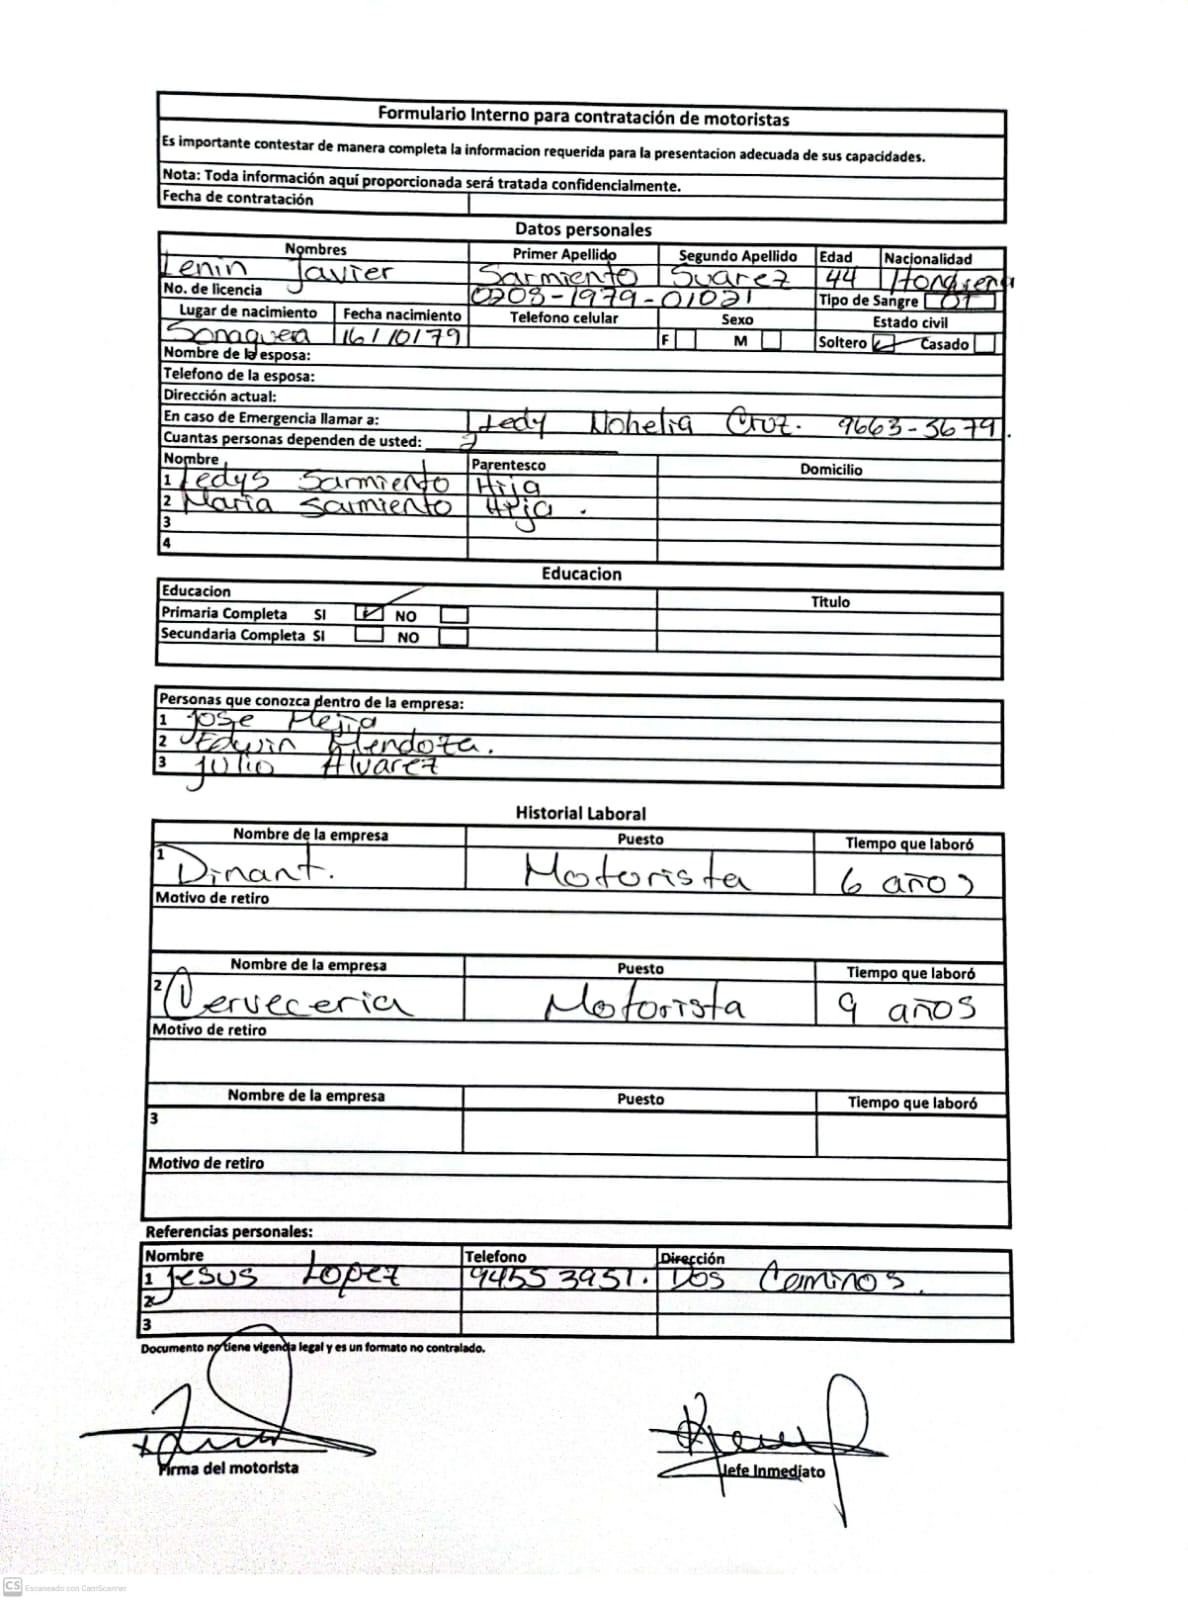 Formulario Interno para contratación de motoristas
Es importante contestar de manera completa la informacion requerida para la presentacion adecuada de sus capacidades.
Nota: Toda información aquí proporcionada será tratada confidencialmente.
Fecha de contratación
Datos personales
Nombres Primer Apellido Segundo Apellido Edad Nacionalidad
Lenin Javier Sarmiento Suarez 44 Hondureña
No. de licencia 0209-1979-01021 Tipo de Sangre O+
Lugar de nacimiento Fecha nacimiento Telefono celular Sexo Estado civil
Sonaguera 16/10/79 F M Soltero Casado
Nombre de la esposa:
Telefono de la esposa:
Dirección actual:
En caso de Emergencia llamar a: Ledy Nohelia Cruz. 9663-5679.
Cuantas personas dependen de usted: 2
Nombre Parentesco Domicilio
1 Ledys Sarmiento Hija
2 Maria Sarmiento Hija .
3
4
Educacion
Educacion Titulo
Primaria Completa SI NO
Secundaria Completa SI NO
Personas que conozca dentro de la empresa:
1 Jose Mejia
2 Edwin Mendoza.
3 Julio Alvarez
Historial Laboral
Nombre de la empresa Puesto Tiempo que laboró
1 Dinant. Motorista 6 años
Motivo de retiro
Nombre de la empresa Puesto Tiempo que laboró
2 Cerveceria Motorista 9 años
Motivo de retiro
Nombre de la empresa Puesto Tiempo que laboró
3
Motivo de retiro
Referencias personales:
Nombre Telefono Dirección
1 Jesus Lopez 94553951. Dos Caminos.
2
3
Documento no tiene vigencia legal y es un formato no contralado.
Firma del motorista Jefe Inmediato
CS Escaneado con CamScanner